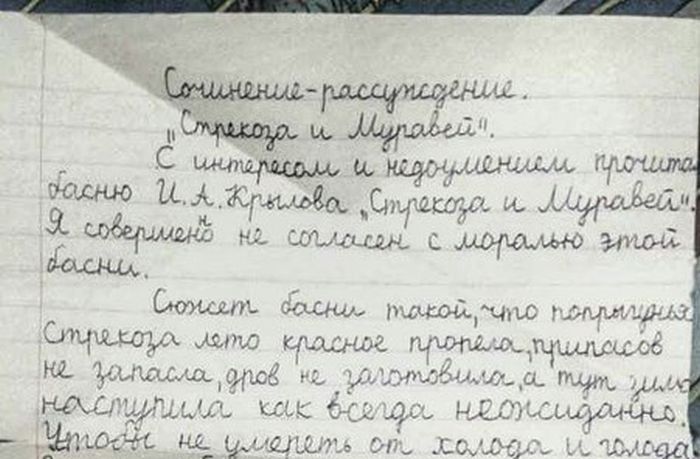 Сочинение-рассуждение.
„Стрекоза и Муравей".
С интересом и недоумением прочита
басню И.А.Крылова „Стрекоза и Муравей".
Я совершенно не согласен с моралью этой
басни.
Сюжет басни такой, что попрыгунья
Стрекоза лето красное пропела, припасов
не запасла, дров не заготовила, а тут зима
наступила как всегда неожиданно.
Чтобы не умереть от холода и голода